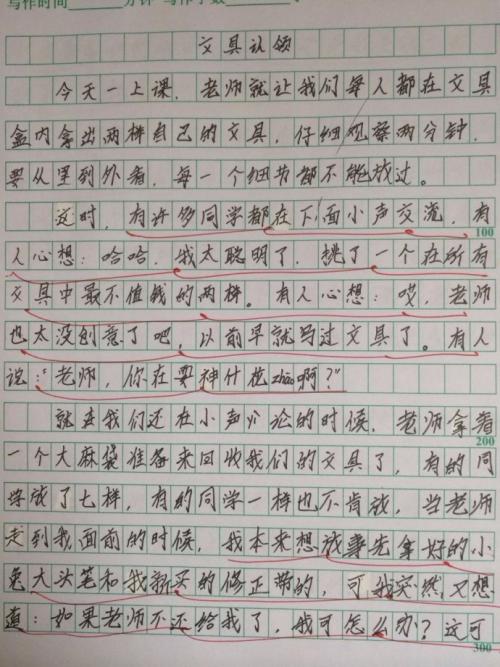 写作时间 分钟 写作字数
文具认领
今天一上课，老师就让我们每人都在文具
盒内拿出两样自己的文具，仔细观察两分钟，
要从里到外看，每一个细节都不能放过。
这时，有许多同学都在下面小声交流，有
100
人心想：哈哈，我太聪明了，挑了一个在所有
文具中最不值钱的两样。有人心想：哎，老师
也太没创意了吧，以前早就写过文具了。有人
说："老师，你在耍神什花zhāo啊？"
就在我们还在小声议论的时候，老师拿着
200
一个大麻袋准备来回收我们的文具了，有的同
学放了七样，有的同学一样也不肯放，当老师
走到我面前的时候，我本来想放事先拿好的小
兔大头笔和我新买的修正带的，可我突然又想
道：如果老师不还给我了，我可怎么办？这可
300